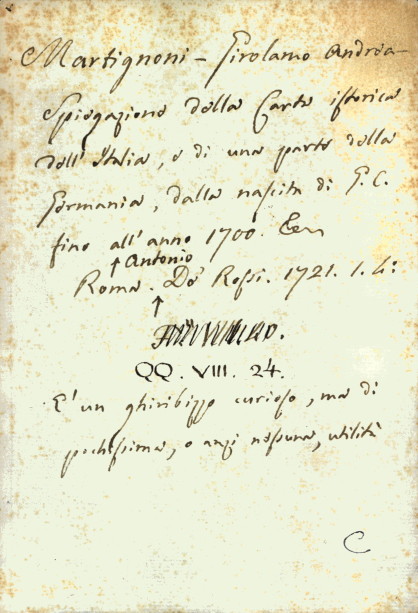 Martignoni - Girolamo Andrea -
Spiegazione della Carta istorica
dell'Italia, e di una parte della
Germania, dalla nascita di G. C.
fino all'anno 1700.
↑ Antonio
Roma. De' Rossi. 1721. 1. 4:
↑
QQ. VIII. 24.
E' un ghiribizzo curioso, ma di
pochissima, o anzi nessuna, utilità
C